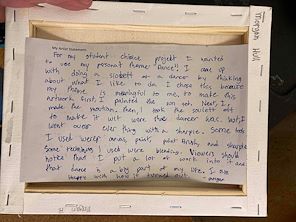 Morgan Hill
My Artist Statement:
For my student choice project I wanted
to use my personal theme: Dance!! I came up
with doing a of a dancer by thinking
about what I like to do. I chose this because
my theme is meaningful to me, to make this
artwork first, I painted the sun set. Next, I
made the mountain. then I took the out
to make it were the dancer was. but I
went over everything with a sharpie. Some tools
I used were: canvas, paint, paint brush, and sharpie
Some techniques I used were blending. Viewers should
notice that I put a lot of work into it and
that dance is a big part of my life. I am
happy with how it turned out.